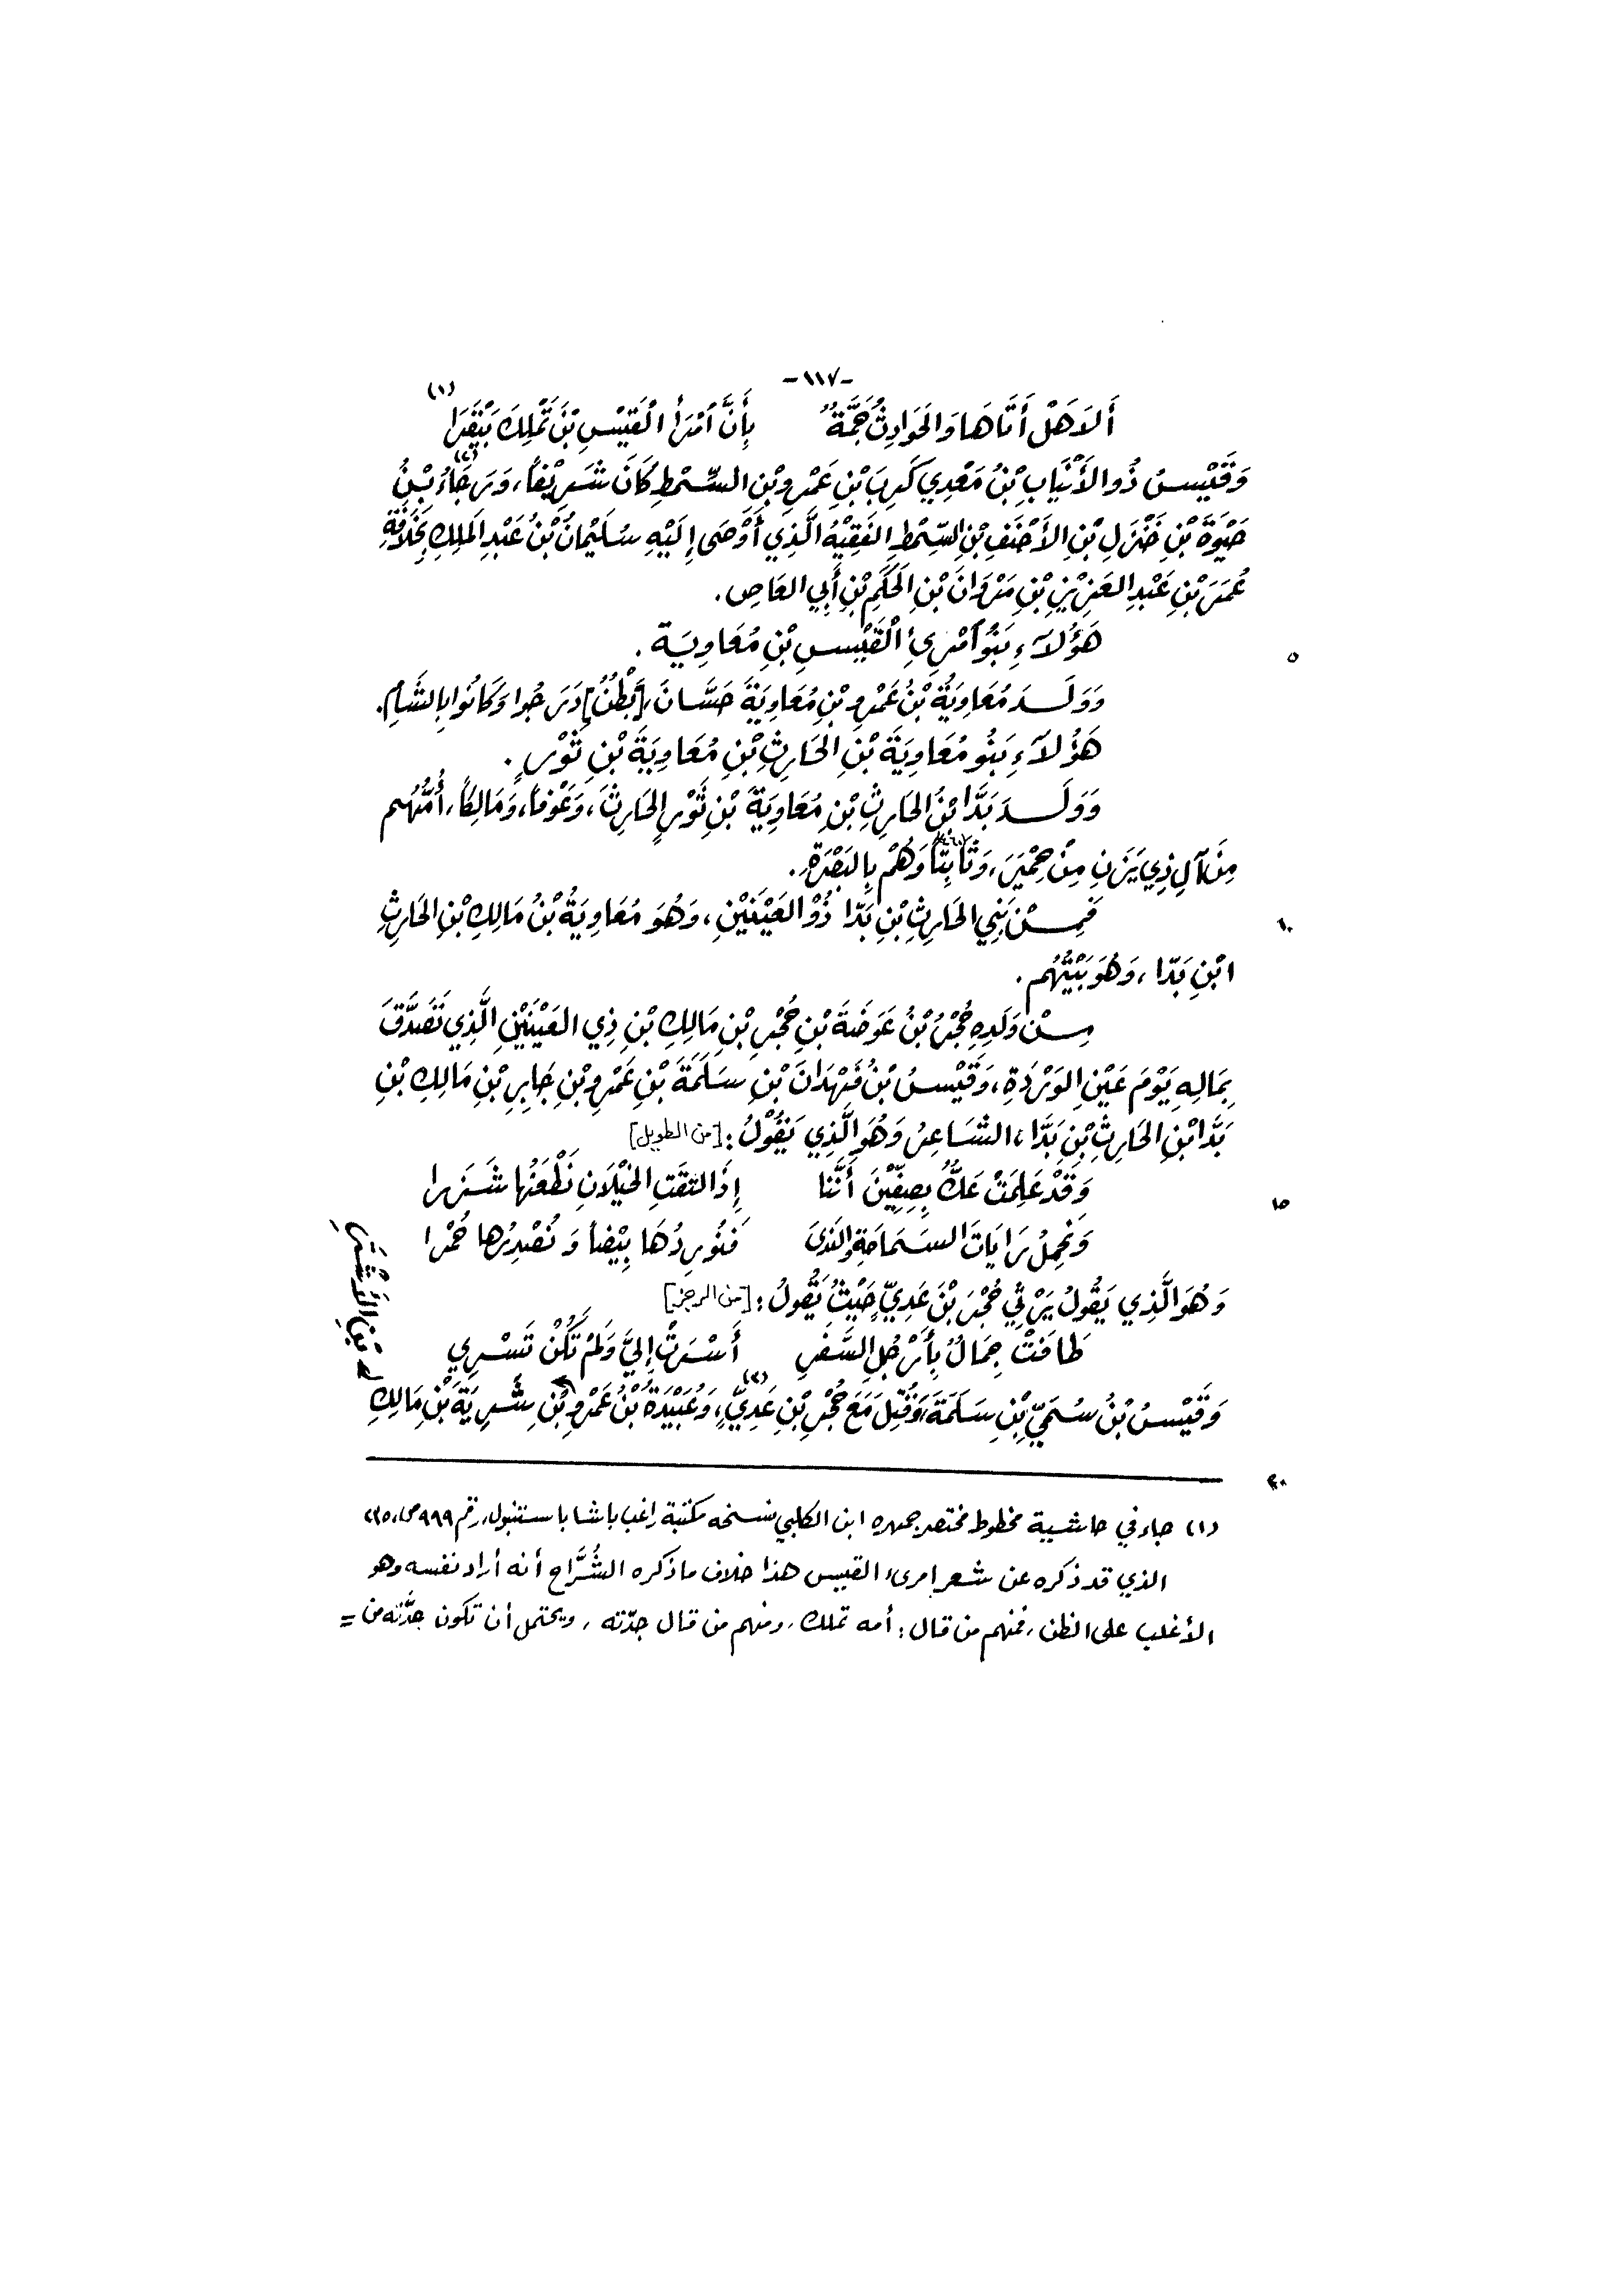 -١١٧-
أَلاَ هَلْ أَتَاهَا وَالحَوَادِثُ جَمَّةٌ بِأَنَّ آمْرَأَ الْقَيْسِ بْنَ تَمْلِكَ بَيْقَرَا (١)
وَقَيْسُ ذُو الأَنْيَابِ بْنُ مَعْدِي كَرِبَ بْنِ عَمْرِو بْنِ السِّمْطِ كَانَ شَرِيْفاً، وَرَجَاءُ بْنُ (٢)
حَيْوَةَ بْنِ خَنْزَلِ بْنِ الأَحْنَفِ بْنِ السِّمْطِ الفَقِيْهُ الَّذِي أَوْصَى إِلَيْهِ سُلَيْمَانُ بْنُ عَبْدِ المَلِكِ بِخِلاَفَةِ
عُمَرَ بْنِ عَبْدِ العَزِيْزِ بْنِ مَرْوَانَ بْنِ الحَكَمِ بْنِ أَبِي العَاصِ.
هَؤُلاَءِ بَنُو آمْرِئِ الْقَيْسِ بْنِ مُعَاوِيَة.
٥
وَوَلَدَ مُعَاوِيَةُ بْنُ عَمْرِو بْنِ مُعَاوِيَةَ حَسَّانَ، [بَطْنٌ] دَرَجُوا وَكَانُوا بِالشَّامِ.
هَؤُلاَءِ بَنُو مُعَاوِيَةَ بْنِ الحَارِثِ بْنِ مُعَاوِيَةَ بْنِ ثَوْرٍ.
وَوَلَدَ بَدَّا بْنُ الحَارِثِ بْنِ مُعَاوِيَةَ بْنِ ثَوْرٍ الحَارِثَ، وَعَوْفاً، وَمَالِكاً، أُمُّهُم
مِنْ آلِ ذِي يَزَنٍ مِنْ حِمْيَرَ، وَثَابِتاً وَهُمْ بِالبَصْرَةِ.
فَمِنْ بَنِي الحَارِثِ بْنِ بَدّا ذُوْ العَيْنَيْنِ، وَهُوَ مُعَاوِيَةُ بْنُ مَالِكِ بْنِ الحَارِثِ
١٠
ابْنِ بَدّا، وَهُوَ بَيْتُهُم.
مِنْ وَلَدِهِ حُجْرُ بْنُ عَوَضَةَ بْنِ حُجْرِ بْنِ مَالِكِ بْنِ ذِي العَيْنَيْنِ الَّذِي تَصَدَّقَ
بِمَالِهِ يَوْمَ عَيْنِ الوَرْدَةِ، وَقَيْسُ بْنُ فَهْدَانَ بْنِ سَلَمَةَ بْنِ عَمْرِو بْنِ جَابِرِ بْنِ مَالِكِ بْنِ
بَدَّا بْنِ الحَارِثِ بْنِ بَدَّا، الشَّاعِرُ وَهُوَ الَّذِي يَقُوْلُ: [من الطويل]
وَقَدْ عَلِمَتْ عَكٌّ بِصِفِّيْنَ أَنَّنَا إِذَا التَقَتِ الخَيْلاَنِ نَطْعَنُهَا شَزَرا
١٥
وَنَحْمِلُ رَايَاتَ السَّمَاحَةِ وَالنَدَى فَنُورِدُهَا بِيْضاً وَنُصْدِرُها حُمْرا
وَهُوَ الَّذِي يَقُولُ يَرْثِي حُجْرَ بْنَ عَدِيٍّ حَيْثُ يَقُولُ: [من الرجز]
طَافَتْ جِمَالٌ بِأَرْحُلِ السَّفْرِ أَسْرَتْ إِلَيَّ وَلَمْ تَكُنْ تَسْرِي
وَقَيْسُ بْنُ سُمَيِّ بْنِ سَلَمَةَ، وَقُتِلَ مَعَ حُجْرِ بْنِ عَدِيٍّ، (٣) وَعُبَيْدَةُ بْنُ عَمْرِو بْنِ شَرِيَةَ بْنِ مَالِكِ
٢٠
(١) جاء في حاشية مخطوط مختصر جمهرة ابن الكلبي نسخة مكتبة راغب باشا باستنبول، رقم ٩٩٩ ص
الذي قد ذكره عن شعر إمرىء القيس هذا خلاف ما ذكره الشُّرَّاح أنه أراد نفسه وهو
الأغلب على الظن، فمنهم من قال: أمه تملك، ومنهم من قال جدّته، ويحتمل أن تكون جدّته من =